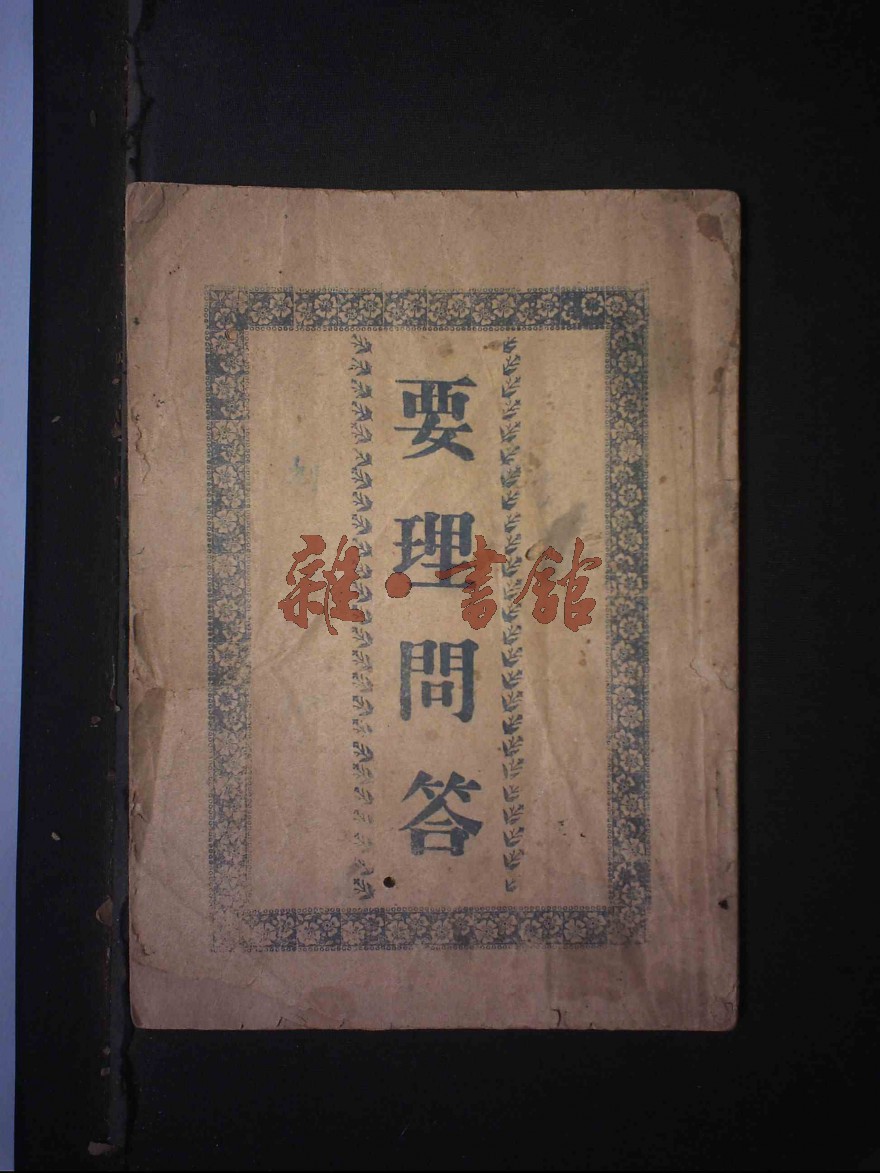 要理問答
雜·書館